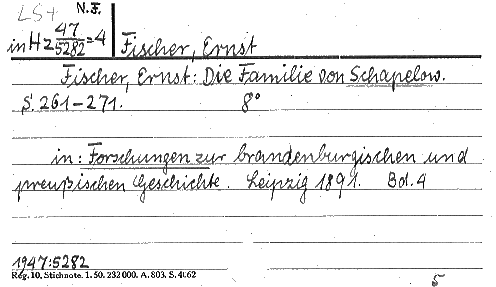 LS+ N.F.
in Hz 47/5282=4 Fischer, Ernst
Fischer, Ernst: Die Familie von Schapelow.
S. 261-271. 8°
in: Forschungen zur brandenburgischen und
preußischen Geschichte. Leipzig 1891. Bd. 4
1947:5282
Reg. 10, Stichnote. 1. 50. 232000. A. 803. S. 4162
5